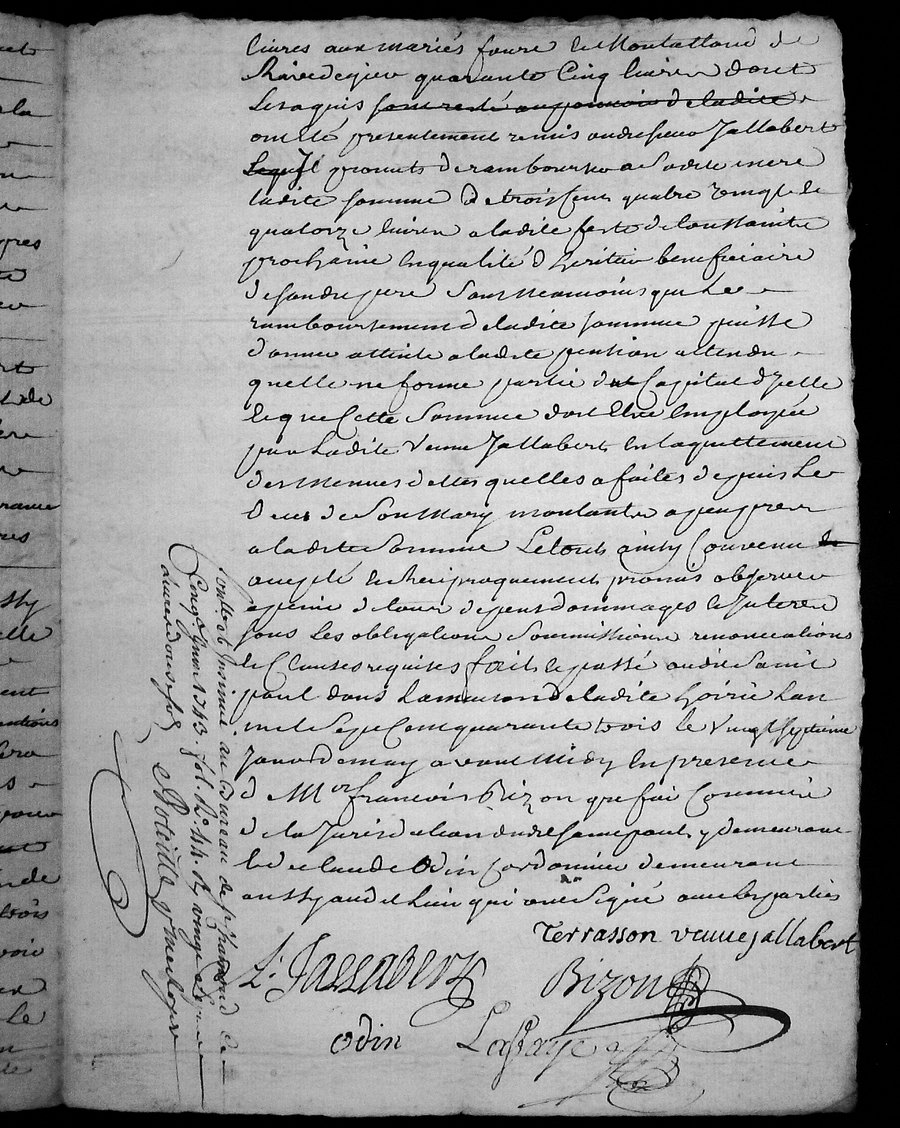 livres aux mariés faure de Montalland de
Rivedegier quarante Cinq livres dont
Lesaquis sont resté au pouvoir de ladite
ont été presentement remis audit sieur Jallabert
Lequel Il promets de rembourser a Sadite mere
ladite somme de trois Cens quatre vingt &
quatorze livres a ladite feste de Toussaintz
prochaine en qualité d'heritier beneficiaire
de sondit pere sans neamoins que Le
ramboursement de ladite somme puisse
donner atteinte a ladite pention attendu
quelle ne forme partie du Capital d'jcelle
& que Cette Somme doit Etre Employée
par Ladite Veuve Jallabert En laquittement
des Menues dettes quelles a faites depuis Le
deces de Son Mary montantes a peu pres
a ladite Somme Le tout ainsy Convenu
accepté & Reciproquement promis observer
a peine de tous depens dommages & Interets
sous Les obligations Soummissions renonciations
& Clauses requises fait & passé audit Saint
paul dans La maison de ladite hoirie Lan
mil Sept Cent quarante trois le Vingt septieme
Jour de may avant Midy En presence
de Mr francois Bizon greffier Commis
de la Jurisdiction dudit Saint paul y demeurant
& de claude Odin Cordonnier demeurant
aussy audit Lieu qui ont Signé avec les parties
Terrasson veuve jallabert
L. Jallabert
Bizon
odin
Lafaye
Controllé & insinué au bureau de st
Cinq. 1743. fol. Ro. 44. Rx vingt
livres douze sols